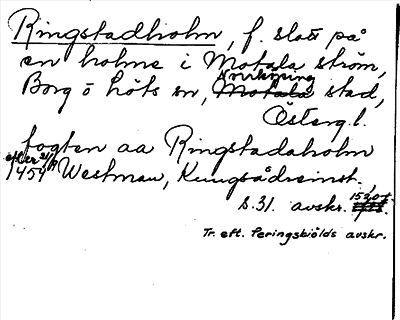 Ringstadholm, f. slott på
en holme i Motala ström,
Borg o Löts sn, Norrköping stad,
Österg l.
fogten aa Ringstadaholm
efter 24/8 1454 Westman, Kungsådreinst.
s. 31. avskr. 1520t
Tr. eft. Peringskiölds avskr.